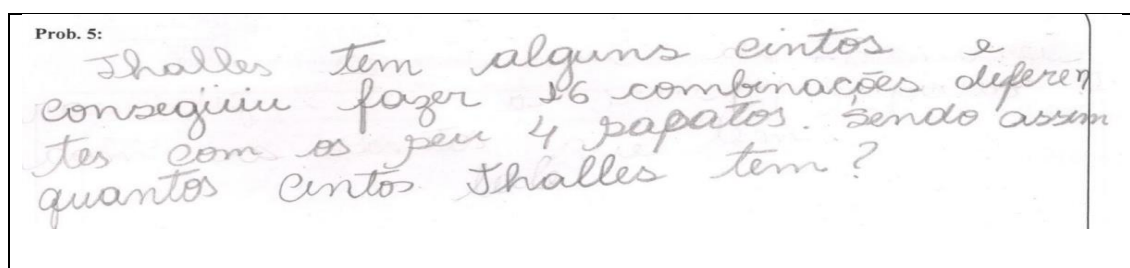 Prob. 5:
Thalles tem alguns cintos e
conseguiu fazer 16 combinações diferen
tes com os seu 4 sapatos. Sendo assim
quantos cintos Thalles tem?